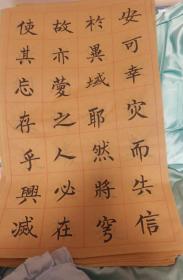 安可幸灾而失信
於異域耶然將穹
故亦之人必在
使其忘存乎興滅